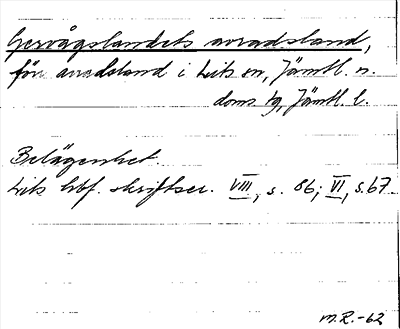 Gervågslandets avradsland,
förr avradsland i Lits sn, Jämtl. n.
doms. tg, Jämtl. l.
Belägenhet.
Lits hbf. skriftser. VIII, s. 86; VI, s. 67.
M.R.-62